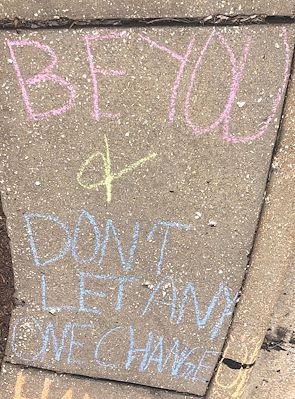 BE YOU
&
DON'T
LET ANY
ONE CHANGE